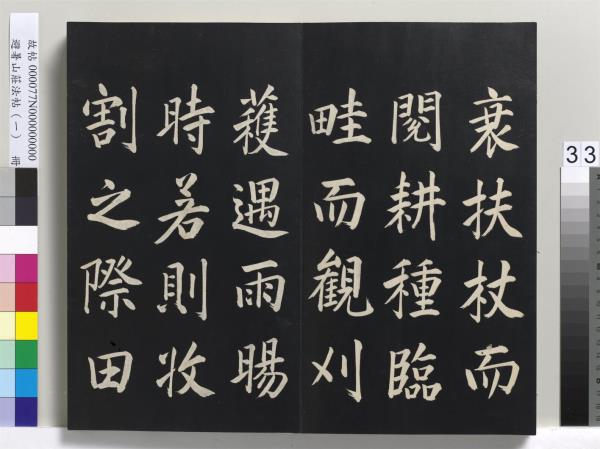 衰扶杖而
閱耕種臨
畦而觀刈
蓻遇雨暘
時若則收
割之際田
故帖 000077N000000000
避暑山莊法帖（一） 冊
33